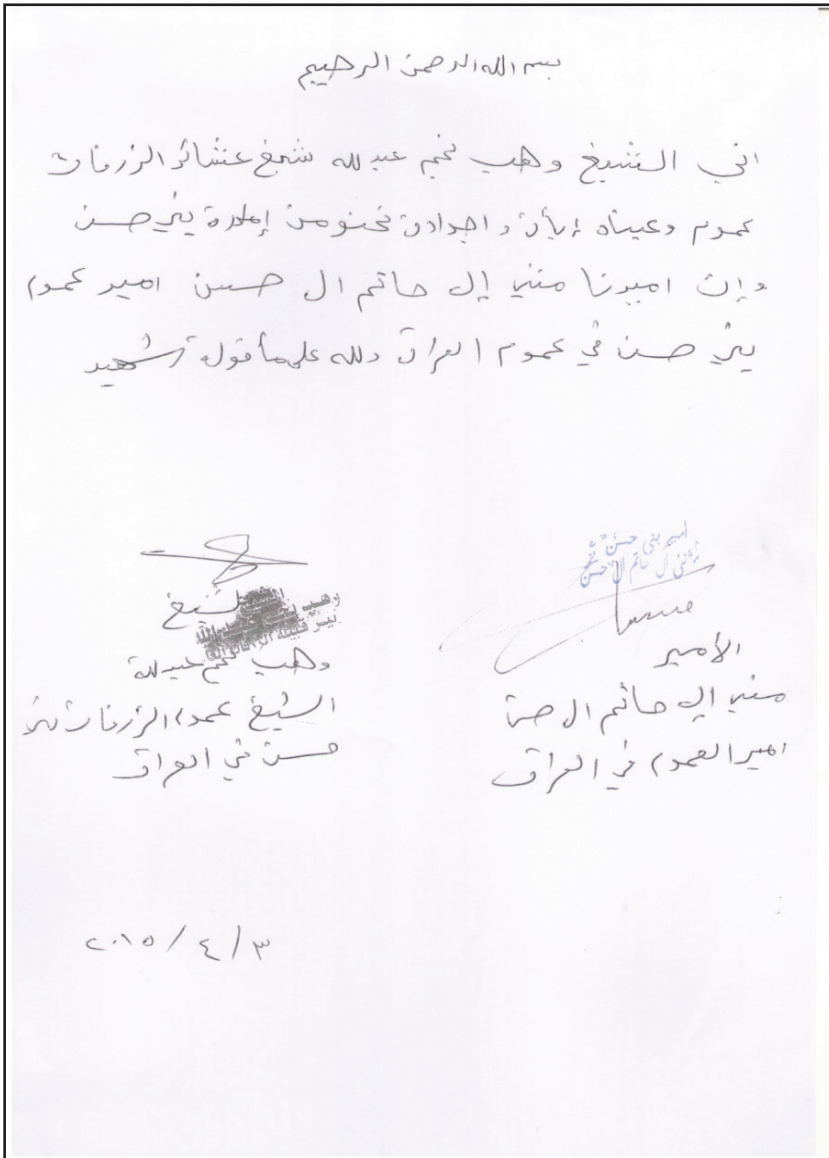 بسم الله الرحمن الرحيم
اني الشيخ وهب نجم عبد لله شيخ عشائر الزرفات
عموم وعيناه إبأن واجدادن نحنومن إمارة بني حسن
وإن اميرنا مثنى إل حاتم ال حسن امير عموم
بني حسن في عموم العراق ولله على مأقوله شهيد
امير بني حسن
مثنى ال حاتم ال حسن
الأمير
مثنى إل حاتم ال حسن
امير العموم في العراق
الشيخ
وهب نجم عبد لله
الشيخ عموم الزرفات بني
حسن في العراق
٢٠١٥/٤/٣